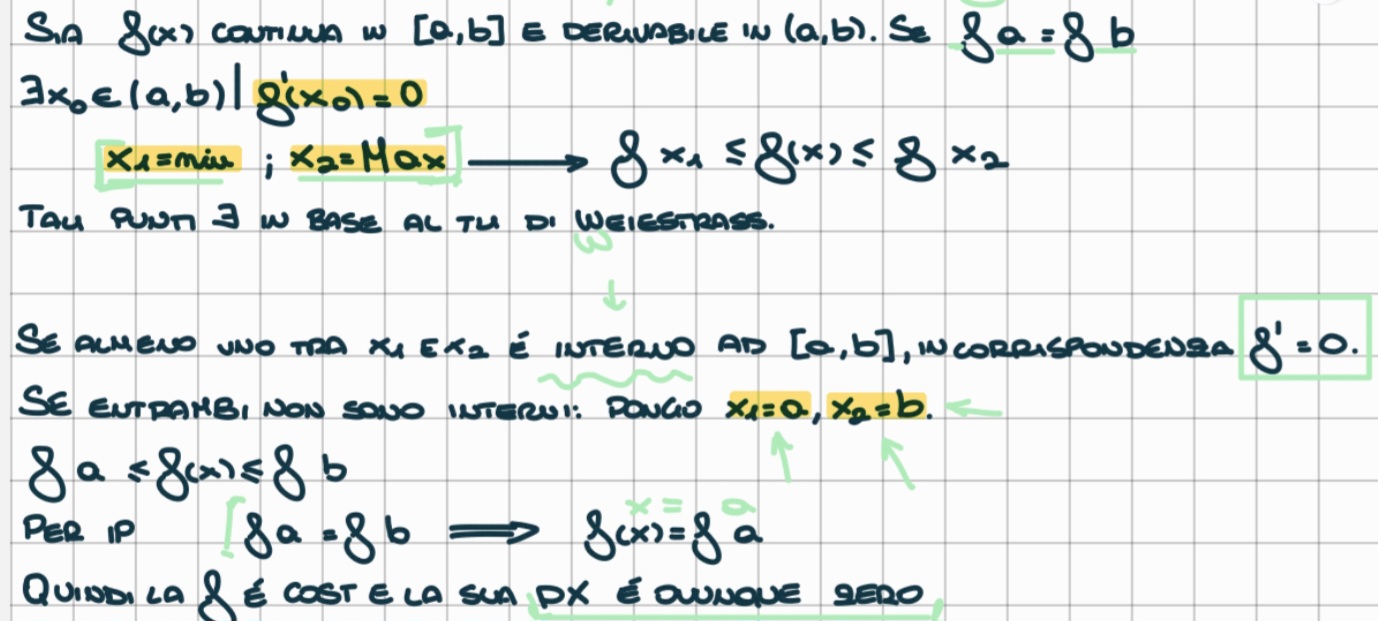 SIA f(x) CONTINUA IN [a,b] E DERIVABILE IN (a,b). SE f a = f b
∃x₀∈(a,b)| f'(x₀) = 0
[x₁=min ; x₂=Max] ⟶ f x₁ ≤ f(x) ≤ f x₂
TALI PUNTI ∃ IN BASE AL TH DI WEIESTRASS.
ω
↓
SE ALMENO UNO TRA x₁ E x₂ É INTERNO AD [a,b], IN CORRISPONDENZA f' = 0.
SE ENTRAMBI NON SONO INTERNI: PONGO x₁=a, x₂=b. ←
f a ≤ f(x) ≤ f b
x = a
PER IP [f a = f b ⟹ f(x) = f a
QUINDI LA f É COST E LA SUA DX É OVUNQUE ZERO